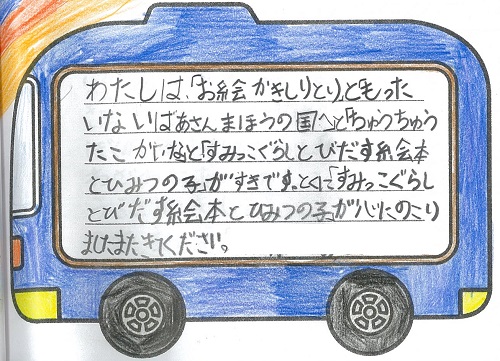 わたしは、「お絵かきしりとり」と「もった
いないばあさんまほうの国へ」と「ちゅうちゅう
たこかいな」と「すみっこぐらしとびだす絵本
とひみつの子」がすきです。とくに「すみっこぐらし
とびだす絵本とひみつの子」が心にのこり
ましたまたきてください。